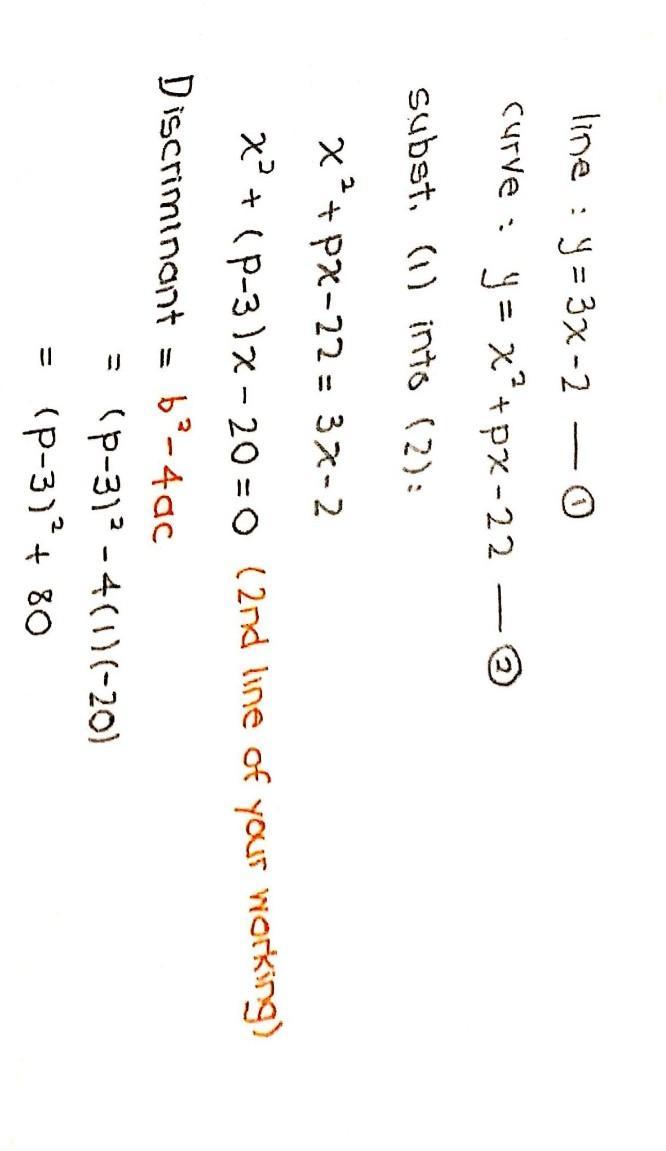 line : y = 3x - 2 — ①
curve : y = x² + px - 22 — ②
subst. (1) into (2) :
x² + px - 22 = 3x - 2
x² + (p-3)x - 20 = 0 (2nd line of your working)
Discriminant = b² - 4ac
= (p-3)² - 4(1)(-20)
= (p-3)² + 80